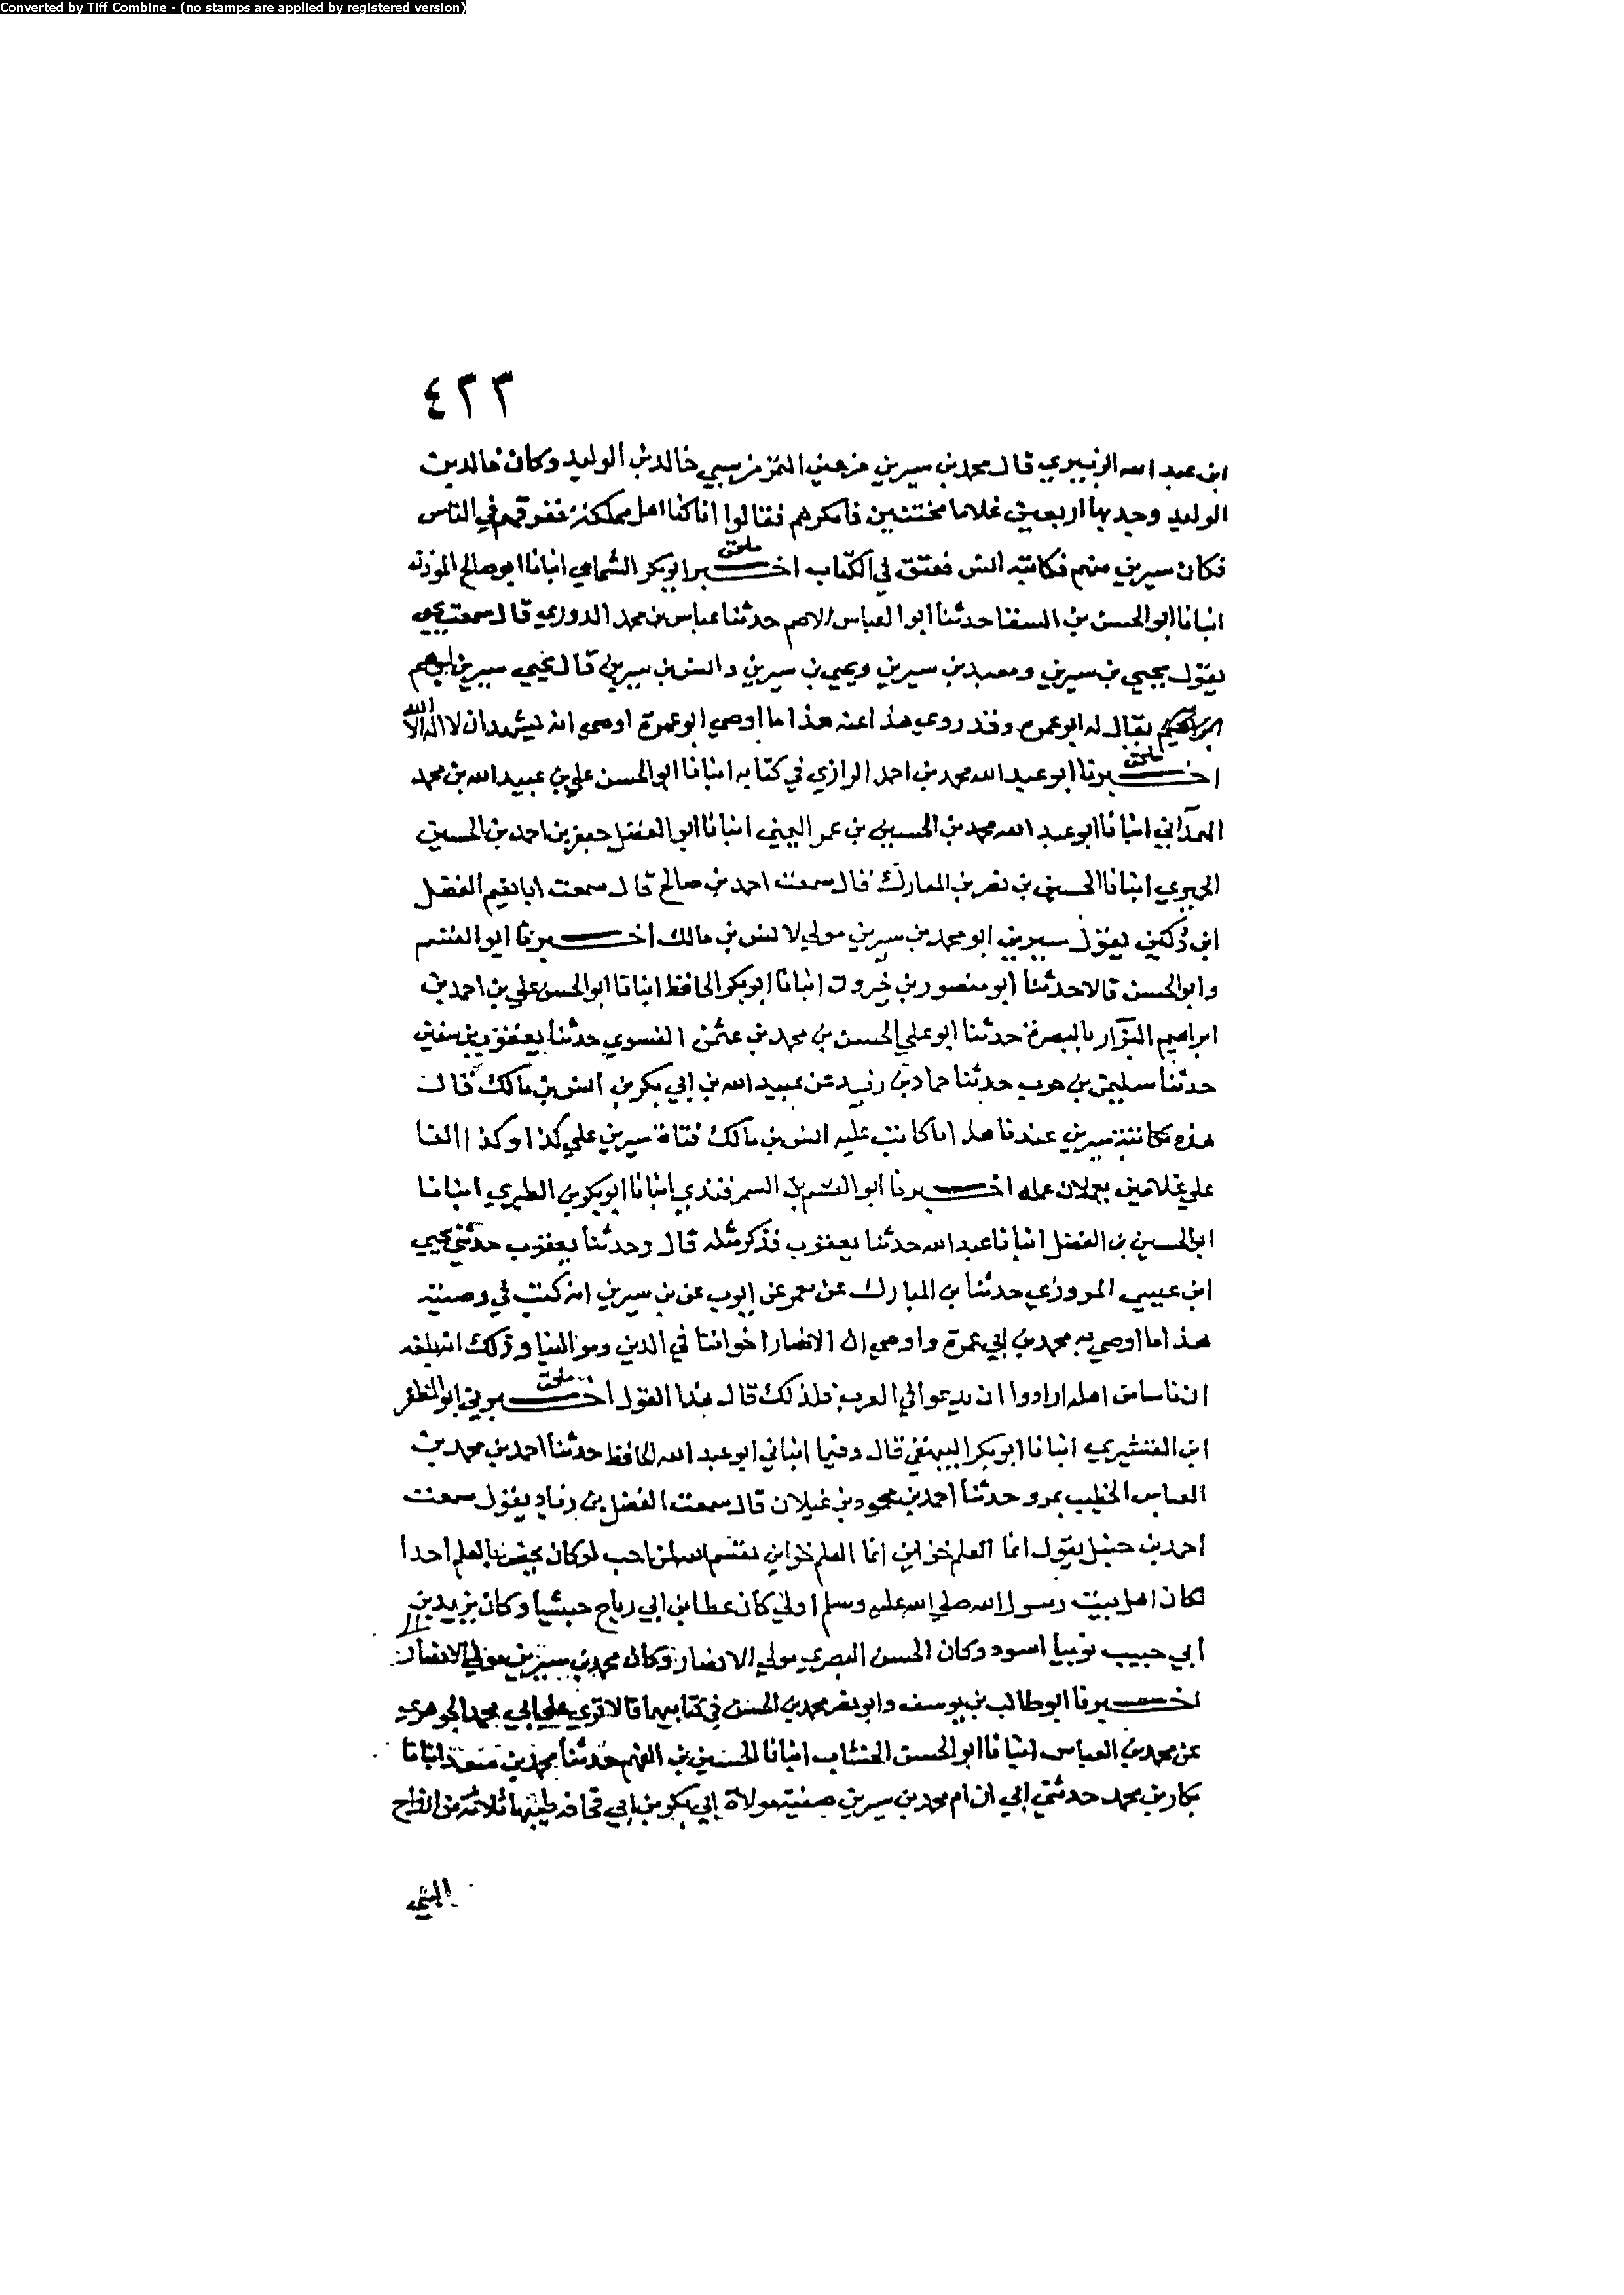 Converted by Tiff Combine - (no stamps are applied by registered version)
٤٢٣
ابن عبد الله الزبيري قال محمد بن سيرين من عين التمر من سبي خالد بن الوليد وكان خالد بن
الوليد وجد بها اربعين غلاما مختتنين فانكرهم فقالوا انا كنا اهل مملكة ففرقهم في الناس
فكان سيرين منهم فكاتبه انس فعتق في الكتاب اخبرنا ابو بكر الشحامي انبانا ابو صالح المؤذن
ملحق
انبانا ابو الحسن بن السقا حدثنا ابو العباس الاصم حدثنا عباس بن محمد الدوري قال سمعت يحيى
يقول يحيى بن سيرين ومعبد بن سيرين ويحيى بن سيرين وانس بن سيرين قال يحيى سيرين ابوهم
يقال له ابو عمرة وقد روي هذا عنه هذا ما اوصى ابو عمرة اوصى انه يشهد ان لا اله الا الله
ملحق
اخبرنا ابو عبد الله محمد بن احمد الرازي في كتابه انبانا ابو الحسن علي بن عبيد الله بن محمد
الهمداني انبانا ابو عبد الله محمد بن الحسين بن عمر اليمني انبانا ابو الفضل جعفر بن احمد بن الحسين
انبانا الحسين بن نصر بن المعارك قال سمعت احمد بن صالح قال سمعت ابا نعيم الفضل
ابن دكين يقول سيرين ابو محمد بن سيرين مولى لانس بن مالك اخبرنا ابو القسم
وابو الحسن قالا حدثنا ابو منصور بن خيرون انبانا ابو بكر الحافظ انبانا ابو الحسن علي بن احمد بن
ابراهيم البزار بالبصرة حدثنا ابو علي الحسن بن محمد بن عثمن الفسوي حدثنا يعقوب بن سفين
حدثنا سليمن بن حرب حدثنا حماد بن زيد عن عبيد الله بن ابي بكر بن انس بن مالك قال
هذه مكاتبة سيرين عندنا هذا ما كاتب عليه انس بن مالك فتاه سيرين على كذا وكذا الفا
على غلامين يعملان عمله اخبرنا ابو القسم بن السمرقندي انبانا ابو بكر بن الطبري انبانا
ابو الحسين بن الفضل انبانا عبد الله حدثنا يعقوب فذكر مثله قال وحدثنا يعقوب حدثني يحيى
ابن عيسى المروزي حدثنا بن المبارك عن معمر عن ايوب عن بن سيرين انه كتب في وصيته
هذا ما اوصى به محمد بن ابي عمرة واوصى ان الانصار اخواننا في الدين وموالينا وذلك انه بلغه
ملحق
ان ناسا من اهله ارادوا ان يدعوا الى العرب فلذلك قال هذا القول اخبرني ابو المظفر
ابن القشيري انبانا ابو بكر البيهقي قال وفيما انباني ابو عبد الله الحافظ حدثنا احمد بن محمد بن
العباس الخطيب بمرو حدثنا احمد بن محمود بن غيلان قال سمعت الفضل بن زياد يقول سمعت
احمد بن حنبل يقول انما العلم خزاين انما العلم خزاين يقسم الله لمن احب لو كان يخص بالعلم احدا
لكان اهل بيت رسول الله صلى الله عليه وسلم اولى كان عطا بن ابي رباح حبشيا وكان يزيد بن
ابي حبيب نوبيا اسود وكان الحسن البصري مولى الانصار وكان محمد بن سيرين مولى الانصار
اخبرنا ابو طالب بن يوسف وابو نصر محمد بن الحسن في كتابيهما قالا قري على ابي محمد الجوهري
عن محمد بن العباس انبانا ابو الحسن الخشاب انبانا الحسين بن الفهم حدثنا محمد بن سعد انبانا
بكار بن محمد حدثني ابي ان ام محمد بن سيرين صفية مولاة ابي بكر بن ابي قحافة طيبها ثلاثة من ازواج
النبي